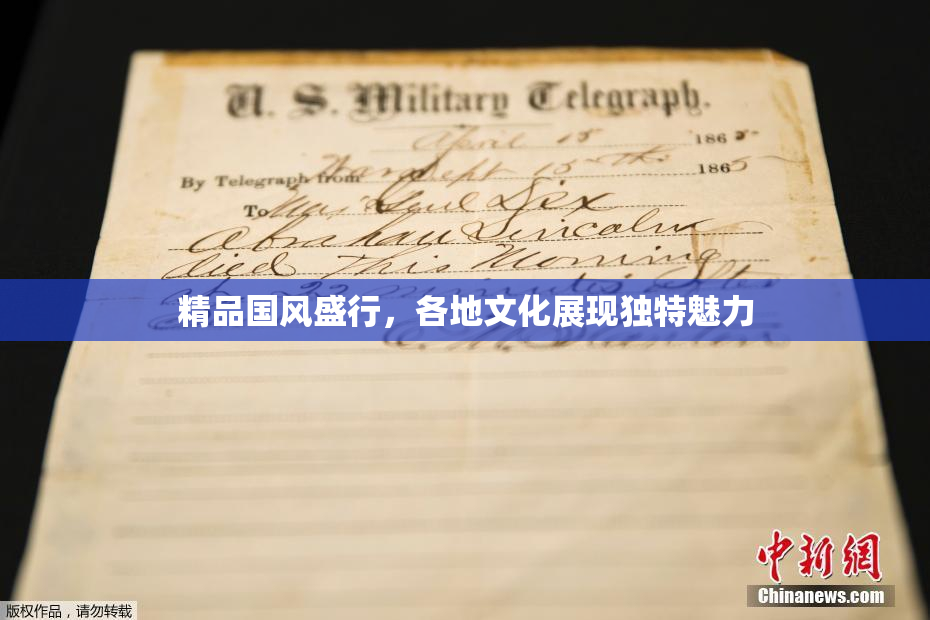 U. S. Military Telegraph.
April 15 1865
By Telegraph from War Dept 15th 1865
To Maj Genl Dix
Abraham Lincoln
died This Morning
at 22 minutes after
精品国风盛行，各地文化展现独特魅力
E. M. Stanton
中新網
Chinanews.com
版权作品，请勿转载